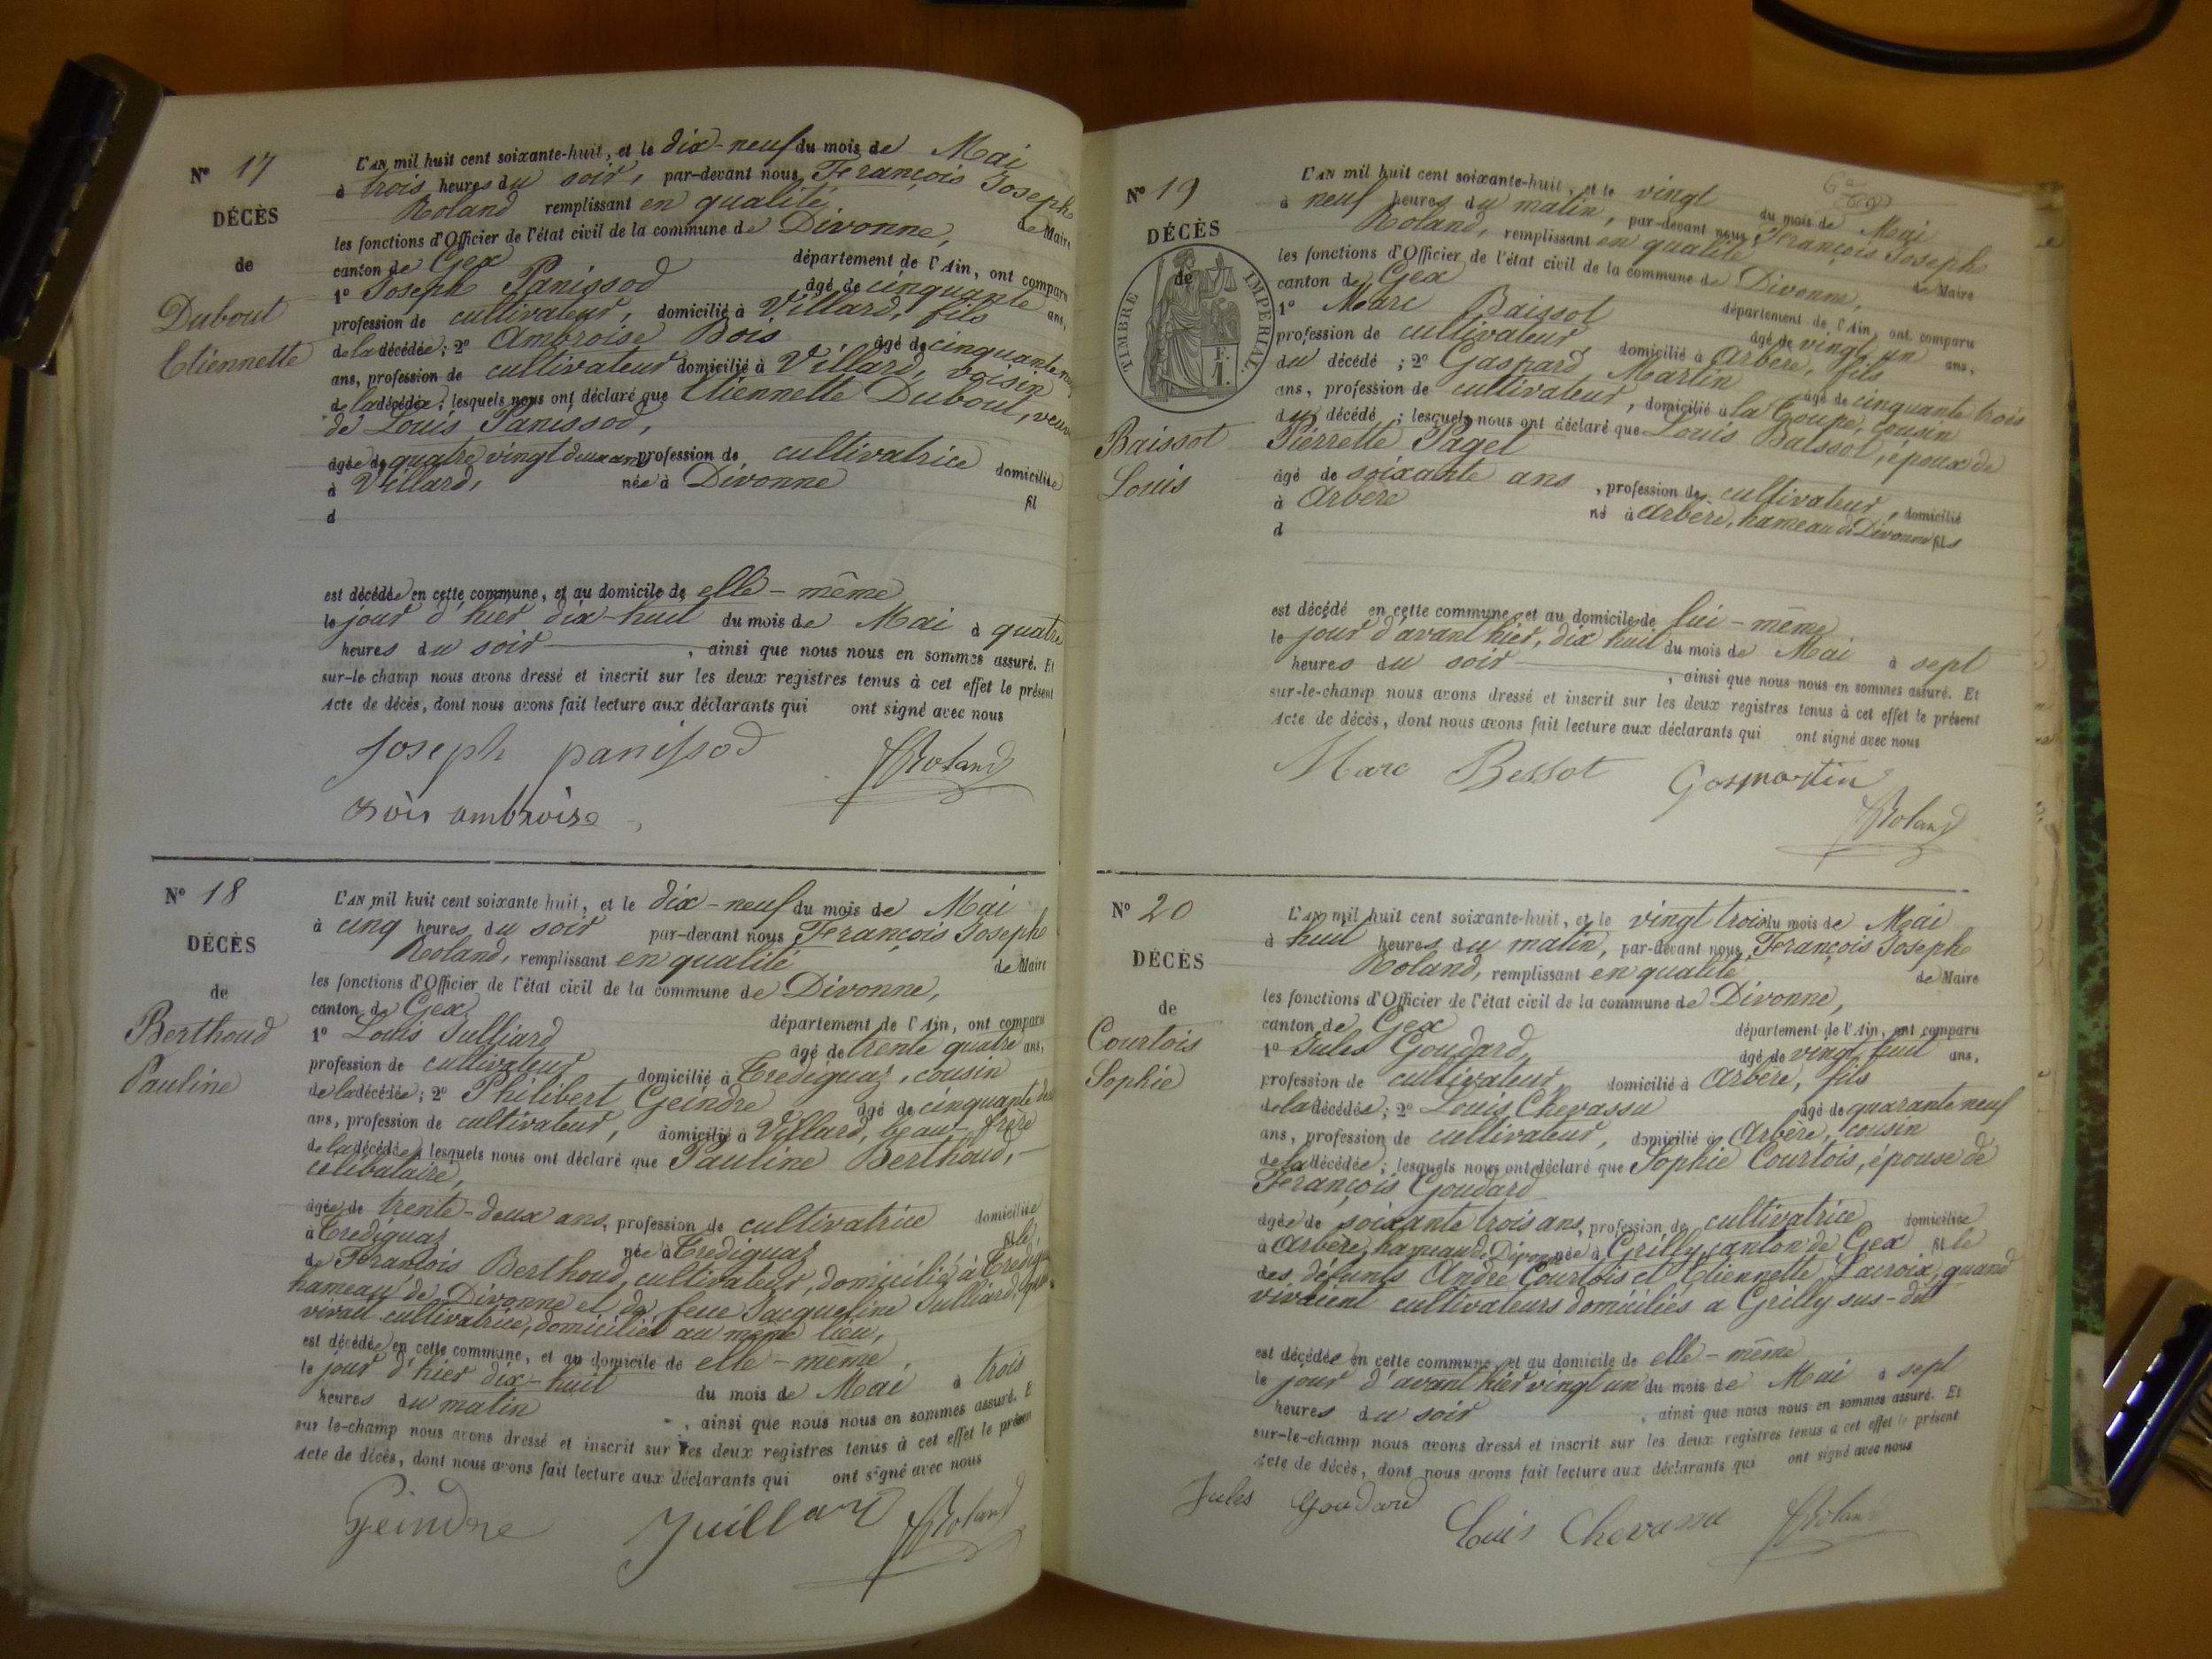 N° 17
DÉCÈS
de
Dubout
Etiennette
L'AN mil huit cent soixante-huit, et le dix-neuf du mois de Mai
à trois heures du soir, par-devant nous François Joseph
Roland remplissant en qualité de Maire
les fonctions d'Officier de l'état civil de la commune de Divonne,
canton de Gex département de l'Ain, ont comparu
1° Joseph Panissod âgé de cinquante ans,
profession de cultivateur, domicilié à Villard, fils
de la décédée; 2° Ambroise Bois âgé de cinquante
ans, profession de cultivateur domicilié à Villard, voisin
de la décédée; lesquels nous ont déclaré que Etiennette Dubout, veuve
de Louis Panissod,
âgée de quatre vingt deux ans profession de cultivatrice domiciliée
à Villard, née à Divonne fil
d
est décédée en cette commune, et au domicile de elle-même
le jour d'hier dix-huit du mois de Mai à quatre
heures du soir, ainsi que nous nous en sommes assuré. Et
sur-le-champ nous avons dressé et inscrit sur les deux registres tenus à cet effet le présent
Acte de décès, dont nous avons fait lecture aux déclarants qui ont signé avec nous
Joseph panissod Roland
Bois ambroise
N° 18
DÉCÈS
de
Berthoud
Pauline
L'AN mil huit cent soixante-huit, et le dix-neuf du mois de Mai
à cinq heures du soir par-devant nous François Joseph
Roland, remplissant en qualité de Maire
les fonctions d'Officier de l'état civil de la commune de Divonne,
canton de Gex département de l'Ain, ont comparu
1° Louis Julliard âgé de trente quatre ans,
profession de cultivateur domicilié à Crediguaz, cousin
de la décédée; 2° Philibert Geindre âgé de cinquante deux
ans, profession de cultivateur, domicilié à Villard, beau-frère
de la décédée, lesquels nous ont déclaré que Pauline Berthoud,
célibataire,
âgée de trente-deux ans, profession de cultivatrice domiciliée
à Crediguaz née à Crediguaz fille
de François Berthoud, cultivateur, domicilié à
hameau de Divonne et de feue Jacqueline Julliard,
vivait cultivatrice, domiciliée au même lieu,
est décédée en cette commune, et au domicile de elle-même,
le jour d'hier dix-huit du mois de Mai à trois
heures du matin, ainsi que nous nous en sommes assuré. E
sur-le-champ nous avons dressé et inscrit sur les deux registres tenus à cet effet le présent
Acte de décès, dont nous avons fait lecture aux déclarants qui ont signé avec nous
Geindre Juillard Roland
N° 19
DÉCÈS
de
TIMBRE IMPÉRIAL
Baissot
Louis
L'AN mil huit cent soixante-huit, et le vingt du mois de Mai
à neuf heures du matin, par-devant nous François Joseph
Roland, remplissant en qualité de Maire
les fonctions d'Officier de l'état civil de la commune de Divonne,
canton de Gex département de l'Ain, ont comparu
1° Marc Baissot âgé de vingt un ans,
profession de cultivateur, domicilié à Arbère, fils
du décédé; 2° Gaspard Martin âgé de cinquante trois
ans, profession de cultivateur, domicilié à la Coupe, cousin
du décédé; lesquels nous ont déclaré que Louis Baissot, époux de
Pierrette Paget
âgé de soixante ans, profession de cultivateur, domicilié
à Arbère né à Arbère, hameau de Divonne fils
d
est décédé en cette commune, et au domicile de lui-même
le jour d'avant hier, dix huit du mois de Mai à sept
heures du soir, ainsi que nous nous en sommes assuré. Et
sur-le-champ nous avons dressé et inscrit sur les deux registres tenus à cet effet le présent
Acte de décès, dont nous avons fait lecture aux déclarants qui ont signé avec nous
Marc Bessot Gasmartin
Roland
N° 20
DÉCÈS
de
Courtois
Sophie
L'AN mil huit cent soixante-huit, et le vingt trois du mois de Mai
à huit heures du matin, par-devant nous, François Joseph
Roland, remplissant en qualité de Maire
les fonctions d'Officier de l'état civil de la commune de Divonne,
canton de Gex département de l'Ain, ont comparu
1° Jules Goudard, âgé de vingt huit ans,
profession de cultivateur, domicilié à Arbère, fils
de la décédée; 2° Louis Chevassu âgé de quarante neuf
ans, profession de cultivateur, domicilié à Arbère, cousin
de la décédée; lesquels nous ont déclaré que Sophie Courtois, épouse de
François Goudard
âgée de soixante trois ans, profession de cultivatrice domiciliée
à Arbère, hameau de Divonne née à Grilly, canton de Gex fille
des défunts André Courtois et Etiennette Lacroix, quand
vivaient cultivateurs domiciliés à Grilly sus-dit
est décédée en cette commune, et au domicile de elle-même
le jour d'avant hier vingt un du mois de Mai à sept
heures du soir, ainsi que nous nous en sommes assuré. Et
sur-le-champ nous avons dressé et inscrit sur les deux registres tenus à cet effet le présent
Acte de décès, dont nous avons fait lecture aux déclarants qui ont signé avec nous
Jules Goudard Louis Chevassu Roland